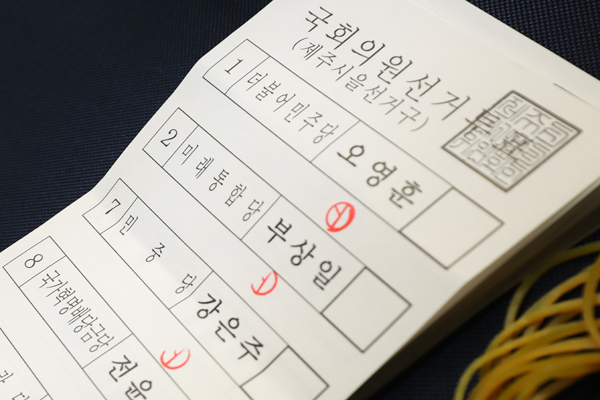 국회의원선거투표
(제주시을선거구)
1 더불어민주당 오영훈
2 미래통합당 부상일
7 민중당 강은주
8 국가혁명배당금당 전윤
당